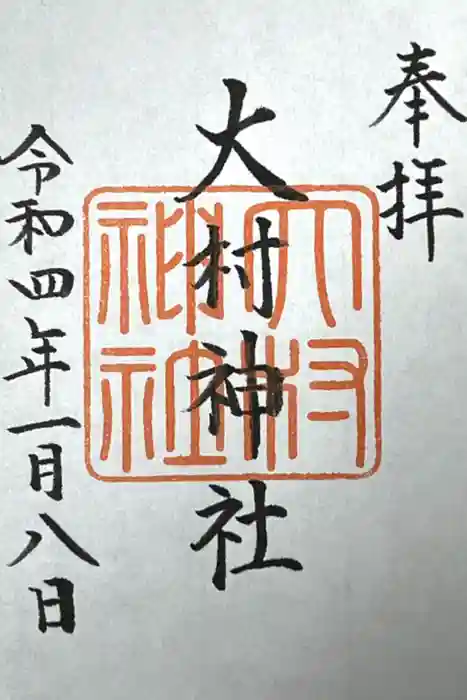 奉拝
大村神社
大村神社
令和四年一月八日